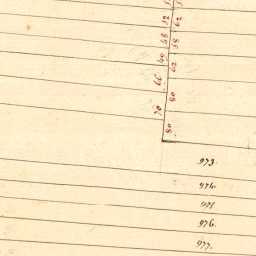 52 62
58 58
60 62
66
80
70
80
973.
974.
975
976.
977.